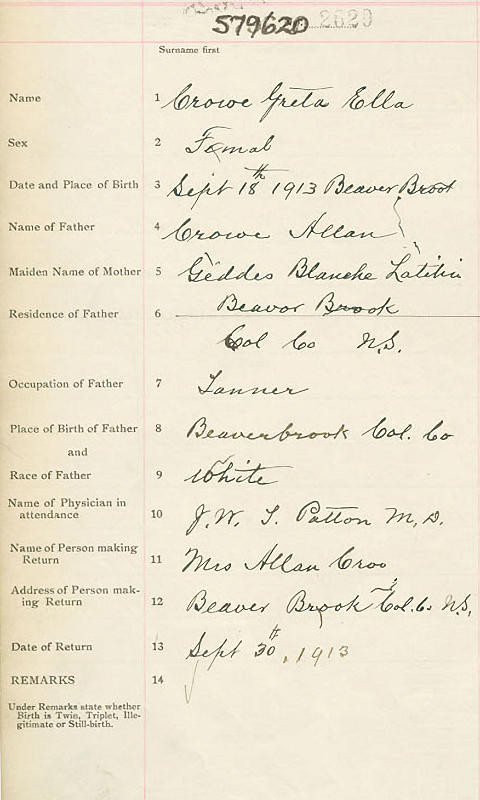 579620 2620
Surname first
Name 1 Crowe Greta Ella
Sex 2 Femal
Date and Place of Birth 3 Sept 18th 1913 Beaver Brook
Name of Father 4 Crowe Allan
Maiden Name of Mother 5 Geddes Blanche
Residence of Father 6 Beavor Brook
Col Co N.S.
Occupation of Father 7 Tanner
Place of Birth of Father 8 Beaverbrook Col. Co
and
Race of Father 9 White
Name of Physician in
attendance 10 J. W. T. Patton M, D.
Name of Person making
Return 11 Mrs Allan Croo
Address of Person mak-
ing Return 12 Beaver Brook Col. Co N.S.
Date of Return 13 Sept 30th, 1913
REMARKS 14
Under Remarks state whether
Birth is Twin, Triplet, Ille-
gitimate or Still-birth.